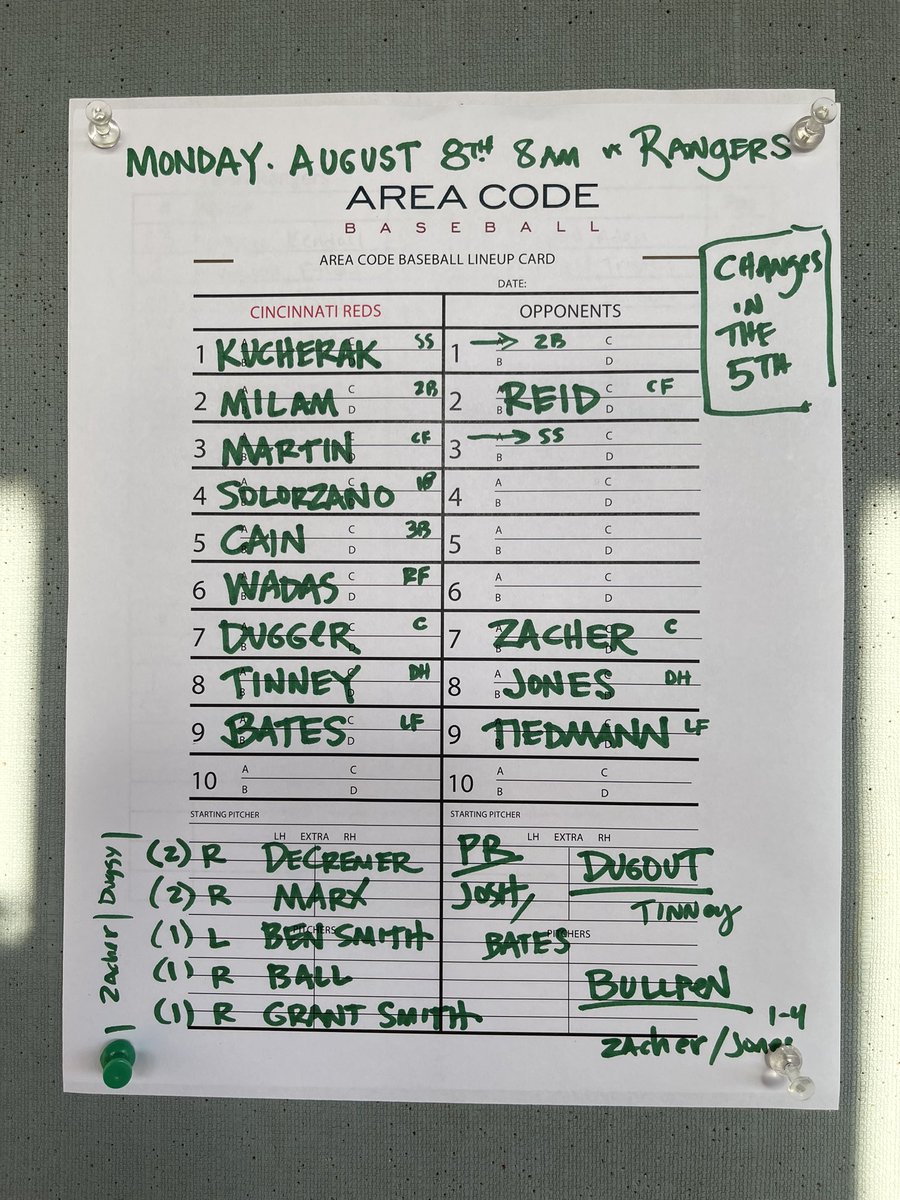 MONDAY. AUGUST 8TH 8AM vs RANGERS
AREA CODE
BASEBALL
AREA CODE BASEBALL LINEUP CARD
DATE:
CHANGES
IN
THE
5TH
CINCINNATI REDS OPPONENTS
1 KUCHERAK SS 1 A → 2B C B D
2 MILAM 2B 2 REID CF
3 MARTIN CF 3 A → SS C B D
4 SOLORZANO 1B 4 A C B D
5 CAIN 3B 5 A C B D
6 WADAS RF 6 A C B D
7 DUGGER C 7 ZACHER C
8 TINNEY DH 8 JONES DH
9 BATES LF 9 TIEDMANN LF
10 A C B D 10 A C B D
STARTING PITCHER STARTING PITCHER
LH EXTRA RH LH EXTRA RH
(2) R DECREMER PR DUGOUT
(2) R MARX JOSH, TINNEY
(1) L BEN SMITH BATES PITCHERS
(1) R BALL BULLPEN
(1) R GRANT SMITH 1-4
Zacher/Jones
Zacher | Duggy |